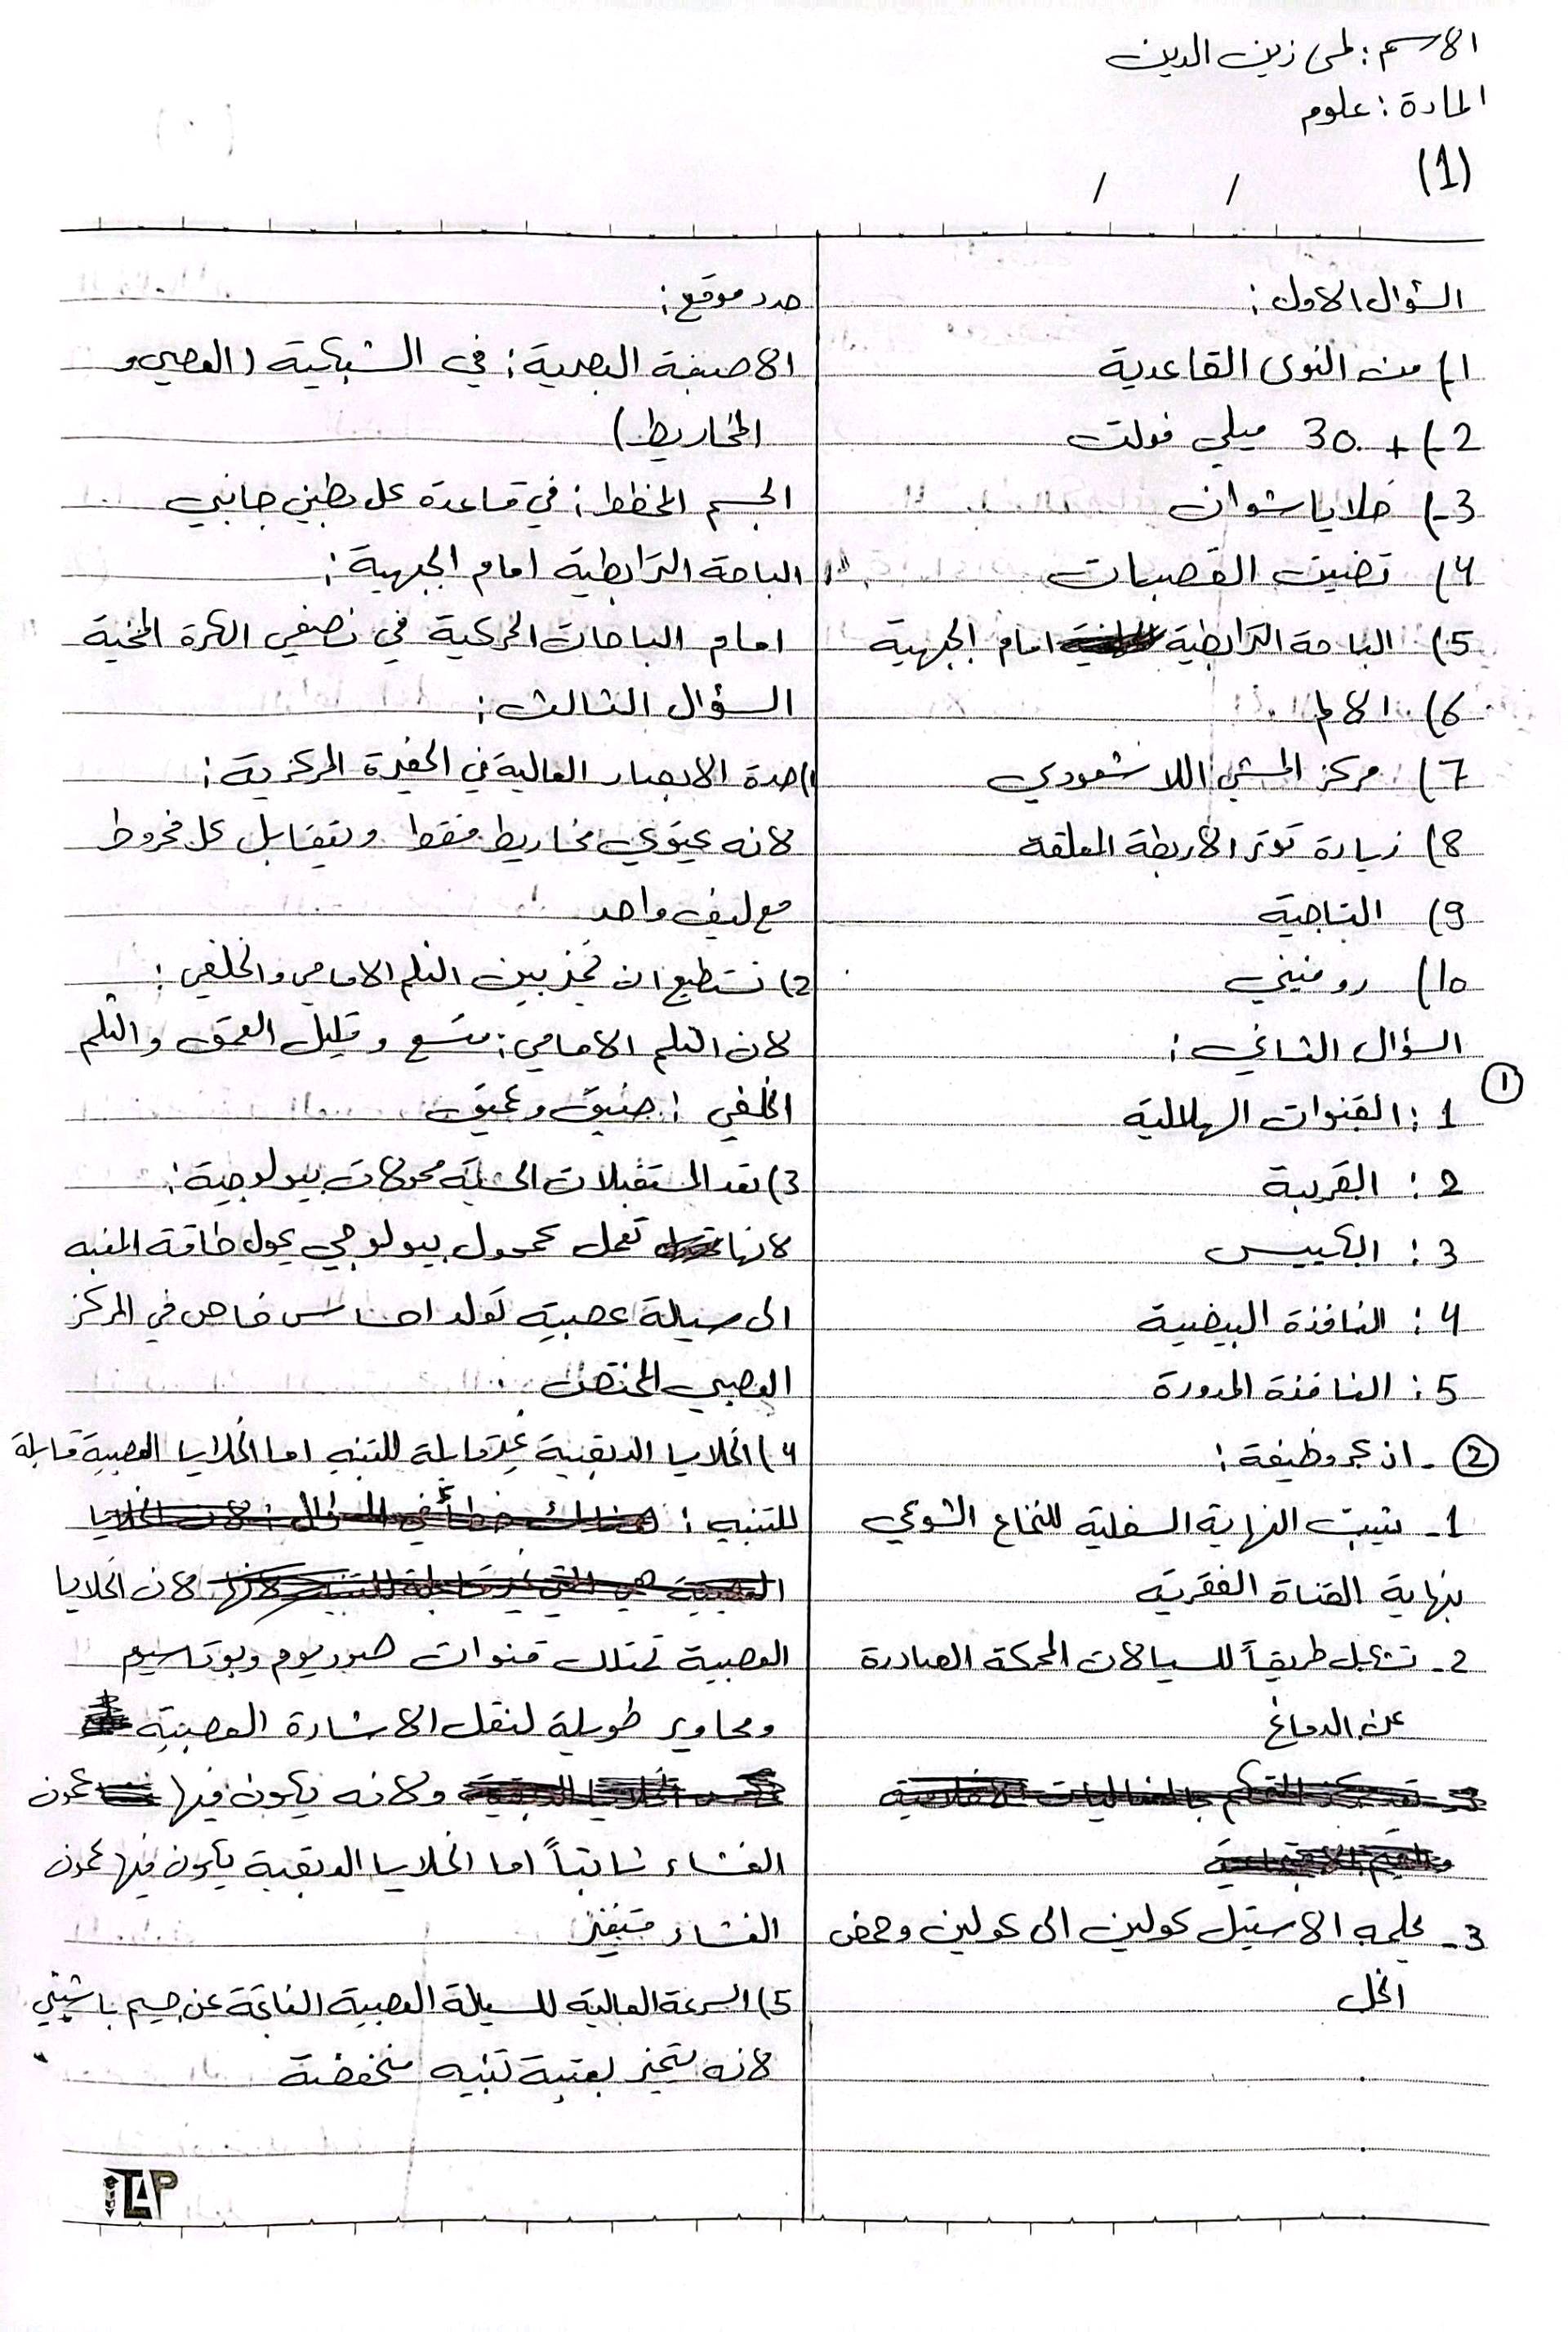 الاسم: لمى زين الدين
المادة: علوم
(1)
/ /
السؤال الاول:
1) من النوى القاعدية
2-) + 30 ميلي فولت
3-) خلايا شوان
4) تضيق القصبات
5) الباحة الترابطية امام الجبهية
6) الالم
7) مركز المشي اللاشعوري
8) زيادة توتر الاربطة المعلقة
9) التاجية
10) رودنيني
السؤال الثاني:
①
1: القنوات الهلالية
2: القريبة
3: الكييس
4: النافذة البيضية
5: النافذة المدورة
② - اذكر وظيفة:
1- تثبيت النهاية السفلية للنخاع الشوكي
بنهاية القناة الفقرية
2- تشكل طريقاً للسيالات المحركة الصادرة
عن الدماغ
3- حلمهه الاستيل كولين الى كولين وحمض
الخل
حدد موقع:
الاصبغة البصرية: في الشبكية (العصي و
المخاريط)
الجسم المخطط: في قاعدة كل بطين جانبي
الباحة الترابطية امام الجبهية:
امام الباحات الحركية في نصفي الكرة المخية
السؤال الثالث:
1) حدة الابصار العالية في الحفيرة المركزية:
لانه يحتوي مخاريط فقط ويتقابل كل مخروط
مع ليف واحد
2) نستطيع ان نميز بين الثلم الامامي والخلفي:
لان الثلم الامامي: متسع وقليل العمق والثلم
الخلفي: ضيق وعميق
3) تعد المستقبلات الحسية محولات بيولوجية:
لانها تعمل كمحول بيولوجي يحول طاقة المنبه
الى سيالة عصبية تولد احساس خاص في المركز
العصبي المختص
4) الخلايا الدبقية غير قابلة للتنبه اما الخلايا العصبية قابلة
للتنبه:
لان الخلايا
العصبية تمتلك قنوات صوديوم وبوتاسيوم
ومحاوير طويلة لنقل الاشارة العصبية
ولانه يكون فيها كمون
الغشاء ثابتاً اما الخلايا الدبقية يكون فيها كمون
الغشاء متغير
5) السرعة العالية للسيالة العصبية الناتجة عن جسيم باشيني
لانه يتميز بعتبة تنبيه منخفضة
TAP